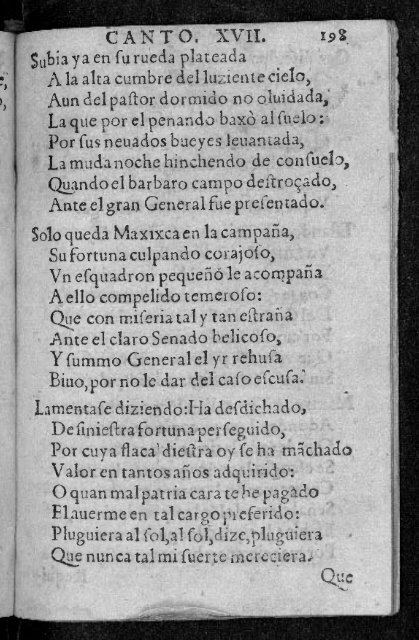 CANTO. XVII. 198
Subia ya en su rueda plateada
A la alta cumbre del luziente cielo,
Aun del pastor dormido no oluidada,
La que por el penando baxò al suelo:
Por sus neuados bueyes leuantada,
La muda noche hinchendo de consuelo,
Quando el barbaro campo destroçado,
Ante el gran General fue presentado.
Solo queda Maxixca en la campaña,
Su fortuna culpando corajoso,
Vn esquadron pequeño le acompaña
A ello compelido temeroso:
Que con miseria tal y tan estraña
Ante el claro Senado belicoso,
Y summo General el yr rehusa
Biuo, por no le dar del caso escusa.
Lamentase diziendo: Ha desdichado,
De siniestra fortuna perseguido,
Por cuya flaca diestra oy se ha mãchado
Valor en tantos años adquirido:
O quan mal patria cara te he pagado
El auerme en tal cargo preferido:
Pluguiera al sol, al sol, dize, pluguiera
Que nunca tal mi suerte mereciera.
Que